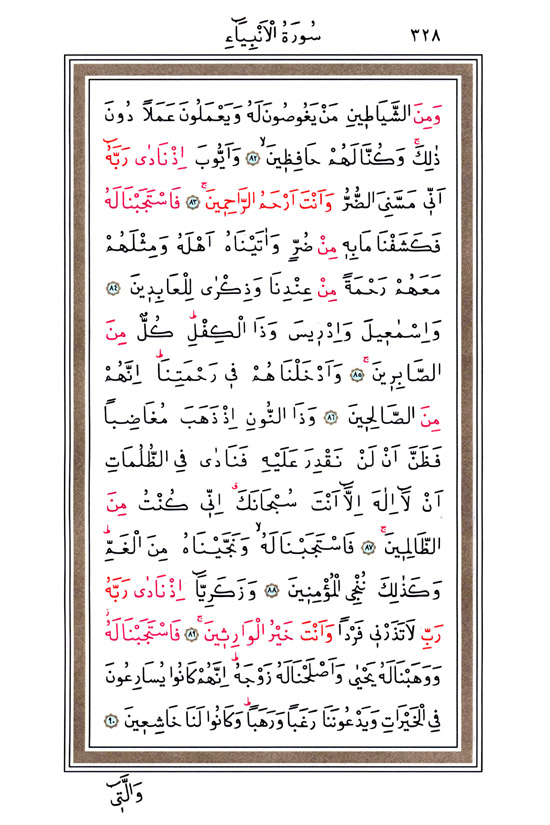 ٣٢٨ سُورَةُ الْاَنْبِيَٓاءِ
وَمِنَ الشَّيَاط۪ينِ مَنْ يَغُوصُونَ لَهُ وَيَعْمَلُونَ عَمَلاً دُونَ
ذٰلِكَۚ وَكُنَّا لَهُمْ حَافِظ۪ينَۙ ﴿٨٢﴾ وَاَيُّوبَ اِذْ نَادٰى رَبَّهُٓ
اَنّ۪ي مَسَّنِيَ الضُّرُّ وَاَنْتَ اَرْحَمُ الرَّاحِم۪ينَۚ ﴿٨٣﴾ فَاسْتَجَبْنَا لَهُ
فَكَشَفْنَا مَا بِه۪ مِنْ ضُرٍّ وَاٰتَيْنَاهُ اَهْلَهُ وَمِثْلَهُمْ
مَعَهُمْ رَحْمَةً مِنْ عِنْدِنَا وَذِكْرٰى لِلْعَابِد۪ينَ ﴿٨٤﴾
وَاِسْمٰع۪يلَ وَاِدْر۪يسَ وَذَا الْكِفْلِۜ كُلٌّ مِنَ
الصَّابِر۪ينَۚ ﴿٨٥﴾ وَاَدْخَلْنَاهُمْ ف۪ي رَحْمَتِنَاۜ اِنَّهُمْ
مِنَ الصَّالِح۪ينَ ﴿٨٦﴾ وَذَا النُّونِ اِذْ ذَهَبَ مُغَاضِباً
فَظَنَّ اَنْ لَنْ نَقْدِرَ عَلَيْهِ فَنَادٰى فِي الظُّلُمَاتِ
اَنْ لَٓا اِلٰهَ اِلَّٓا اَنْتَ سُبْحَانَكَۗ اِنّ۪ي كُنْتُ مِنَ
الظَّالِم۪ينَۚ ﴿٨٧﴾ فَاسْتَجَبْنَا لَهُۙ وَنَجَّيْنَاهُ مِنَ الْغَمِّۜ
وَكَذٰلِكَ نُنْجِي الْمُؤْمِن۪ينَ ﴿٨٨﴾ وَزَكَرِيَّٓا اِذْ نَادٰى رَبَّهُ
رَبِّ لَا تَذَرْن۪ي فَرْداً وَاَنْتَ خَيْرُ الْوَارِث۪ينَۚ ﴿٨٩﴾ فَاسْتَجَبْنَا لَهُۘ
وَوَهَبْنَا لَهُ يَحْيٰى وَاَصْلَحْنَا لَهُ زَوْجَهُۜ اِنَّهُمْ كَانُوا يُسَارِعُونَ
فِي الْخَيْرَاتِ وَيَدْعُونَنَا رَغَباً وَرَهَباًۜ وَكَانُوا لَنَا خَاشِع۪ينَ ﴿٩٠﴾
وَالَّت۪ٓي